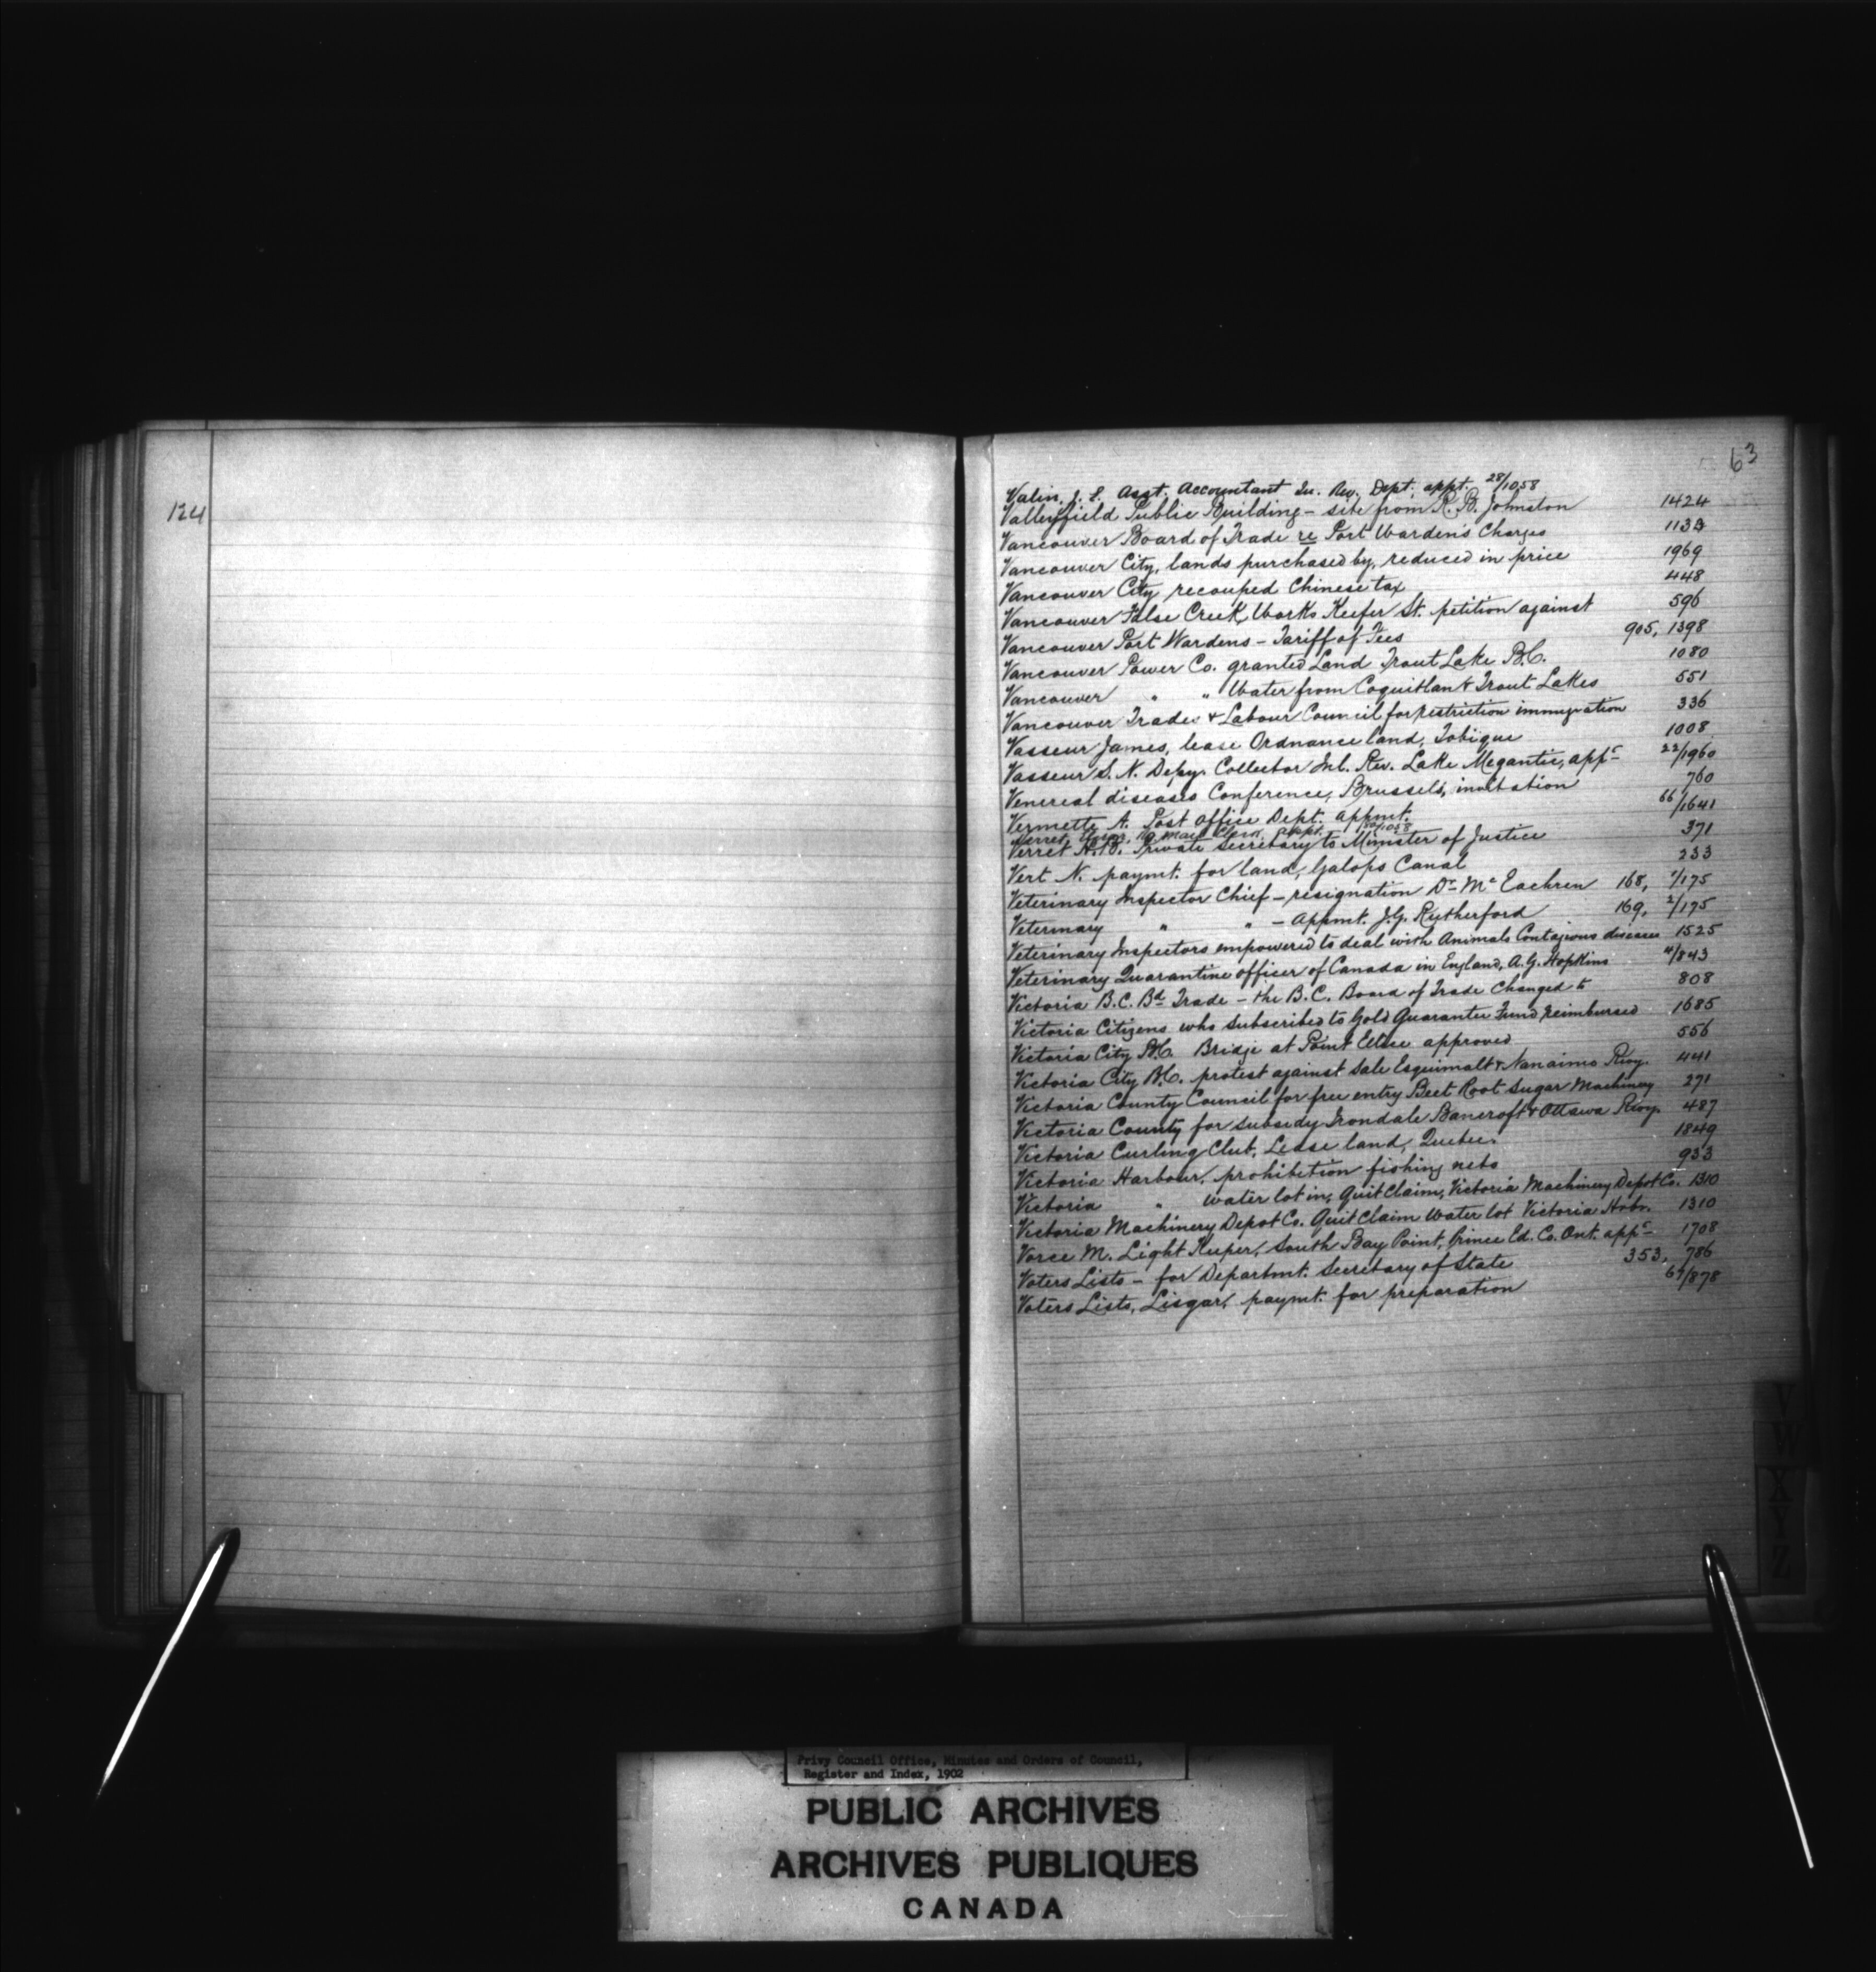 124
63
Valin, J. E. Asst. Accountant In. Rev. Dept. appt. 28/1058
Valleyfield Public Building - site from R. B. Johnston 1424
Vancouver Board of Trade re Port Warden's Charges 1133
Vancouver City, lands purchased by, reduced in price 1969
Vancouver City recouped Chinese tax 448
Vancouver False Creek Works Keefer St. petition against 596
Vancouver Port Wardens - Tariff of Fees 905, 1398
Vancouver Power Co. granted Land Trout Lake B.C. 1080
Vancouver " " Water from Coquitlan & Trout Lakes 551
Vancouver Trades & Labour Council for restriction immigration 336
Vasseur James, lease Ordnance land, Tobique 1008
Vasseur S. N. Depy. Collector Inl. Rev. Lake Megantic, appt 22/1960
Venereal diseases Conference, Brussels, invitation 760
Vermette A. Post Office Dept. appmt. 66/1641
Verret Ry. Mail Clerk, appt. /1058
Verret H.B. Private Secretary to Minister of Justice 371
Vert N. paymt. for land, Galops Canal 233
Veterinary Inspector Chief - resignation Dr McEachren 168, 1/175
Veterinary " " - Appmt. J.G. Rutherford 169, 2/175
Veterinary Inspectors empowered to deal with Animals Contagious diseases 1525
Veterinary Quarantine officer of Canada in England, A.G. Hopkins 4/843
Victoria B.C. Bd Trade - the B.C. Board of Trade changed to 808
Victoria Citizens who subscribed to Gold Guarantee Fund reimbursed 1685
Victoria City B.C. Bridge at Point Ellice approved 556
Victoria City B.C. protest against sale Esquimalt & Nanaimo Rwy. 441
Victoria County Council for free entry Beet Root Sugar Machinery 271
Victoria County for subsidy Irondale Bancroft & Ottawa Rwy. 487
Victoria Curling Club, Lease land, Quebec. 1849
Victoria Harbour, prohibition fishing nets 933
Victoria " water lot in, Quit Claim, Victoria Machinery Depot Co. 1310
Victoria Machinery Depot Co. Quit Claim Water lot Victoria Habr. 1310
Vorce M. Light Keeper, South Bay Point, Prince Ed. Co. Ont. appt 1708
Voters Lists - for Departmt. Secretary of State 353, 786
Voters Lists, Lisgar, paymt. for preparation 67/878
V
W
X
Y
Z
Privy Council Office, Minutes and Orders of Council,
Register and Index, 1902
PUBLIC ARCHIVES
ARCHIVES PUBLIQUES
CANADA